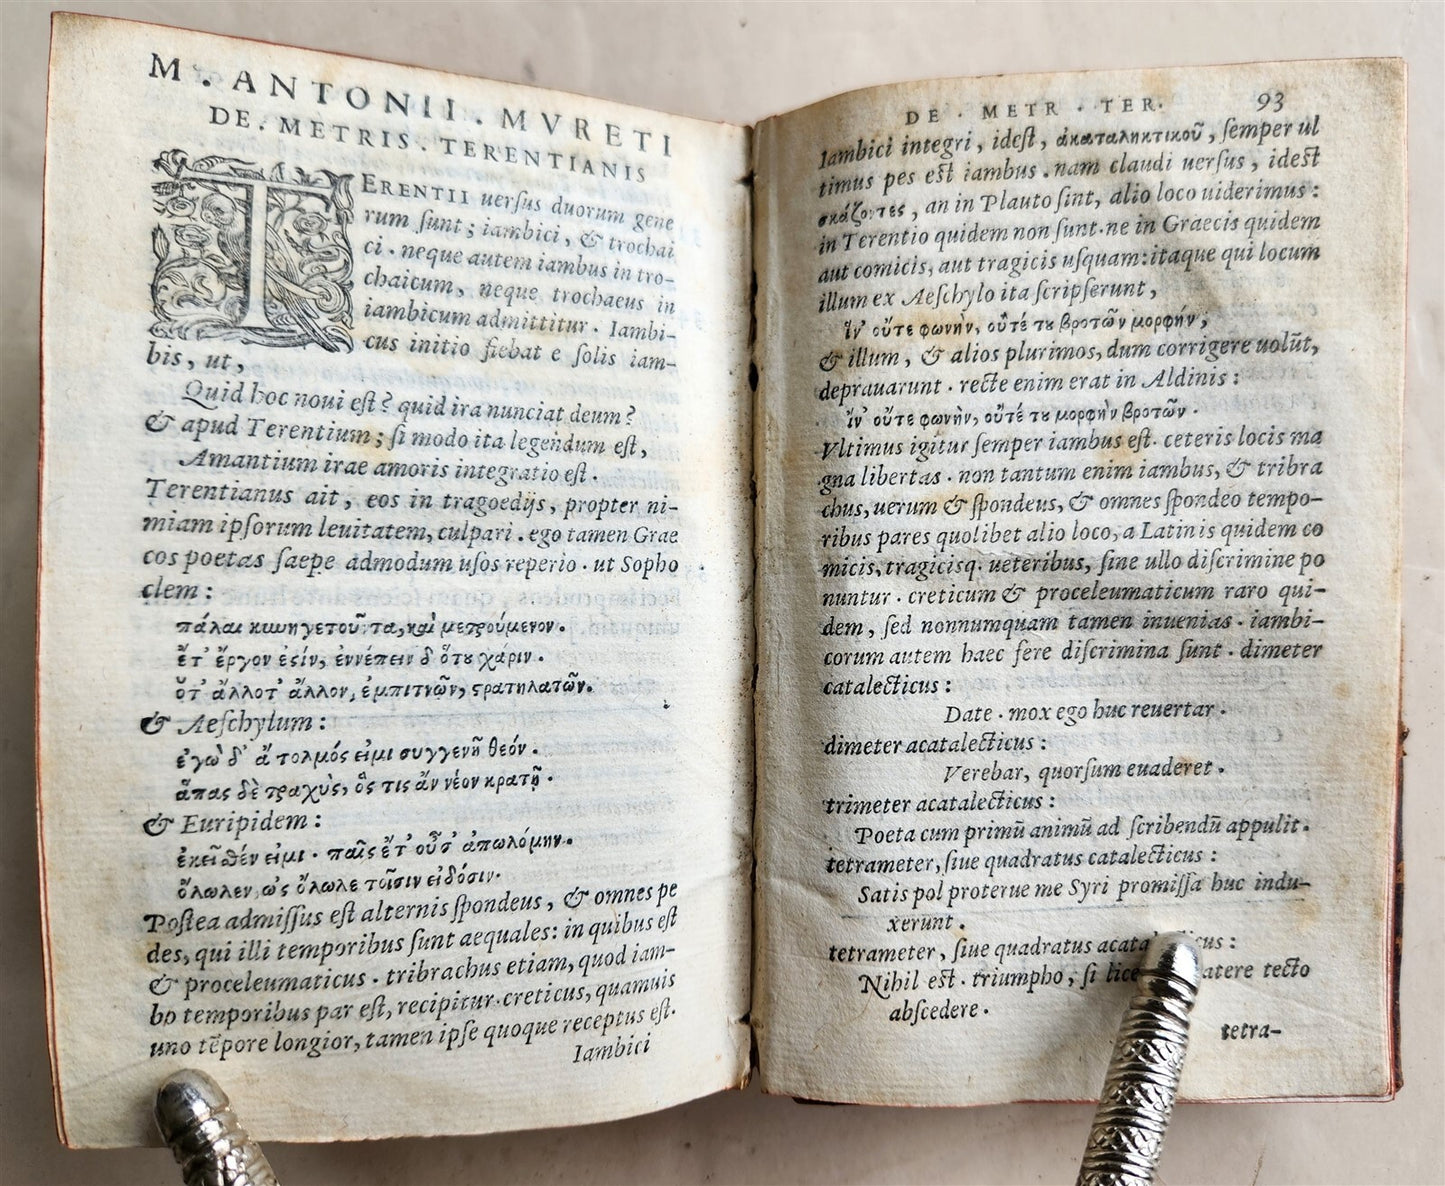 M. ANTONII. MVRETI
DE. METRIS. TERENTIANIS
TERENTII uersus duorum gene
rum sunt; iambici, & trochai
ci. neque autem iambus in tro-
chaicum, neque trochaeus in
iambicum admittitur. Iambi-
cus initio fiebat e solis iam-
bis, ut,
Quid hoc noui est? quid ira nunciat deum?
& apud Terentium; si modo ita legendum est,
Amantium irae amoris integratio est.
Terentianus ait, eos in tragoedijs, propter ni-
miam ipsorum leuitatem, culpari. ego tamen Grae
cos poetas saepe admodum usos reperio. ut Sopho
clem:
πάλαι κυνηγετοῦντα, καὶ μετρούμενον.
ἔτ' ἔργον ἐςίν, ἐννέπειν δ' ὅτου χάριν.
ὅτ' ἄλλοτ' ἄλλον, ἐμπιτνῶν, ςρατηλατῶν.
& Aeschylum:
ἐγὼ δ' ἄτολμός εἰμι συγγενῆ θεόν.
ἅπας δὲ τραχὺς, ὅς τις ἂν νέον κρατῇ.
& Euripidem:
ἐκεῖθέν εἰμι. παῖς ἔτ' οὖσ' ἀπωλόμην.
ὄλωλεν, ὡς ὄλωλε τοῖσιν εἰδόσιν.
Postea admissus est alternis spondeus, & omnes pe
des, qui illi temporibus sunt aequales: in quibus est
& proceleumaticus. tribrachus etiam, quod iam-
bo temporibus par est, recipitur. creticus, quamuis
uno tēpore longior, tamen ipse quoque receptus est.
Iambici
DE. METR. TER. 93
Iambici integri, idest, ἀκαταληκτικοῦ, semper ul
timus pes est iambus. nam claudi uersus, idest
σκάζοντες, an in Plauto sint, alio loco uiderimus:
in Terentio quidem non sunt. ne in Graecis quidem
aut comicis, aut tragicis usquam: itaque qui locum
illum ex Aeschylo ita scripserunt,
ἵν' οὔτε φωνὴν, οὔτέ του βροτῶν μορφήν,
& illum, & alios plurimos, dum corrigere uolūt,
deprauarunt. recte enim erat in Aldinis:
ἵν' οὔτε φωνὴν, οὔτέ του μορφὴν βροτῶν.
Vltimus igitur semper iambus est. ceteris locis ma
gna libertas. non tantum enim iambus, & tribra
chus, uerum & spondeus, & omnes spondeo tempo-
ribus pares quolibet alio loco, a Latinis quidem co
micis, tragicisq. ueteribus, sine ullo discrimine po
nuntur. creticum & proceleumaticum raro qui-
dem, sed nonnumquam tamen inuenias. iambi-
corum autem haec fere discrimina sunt. dimeter
catalecticus:
Date. mox ego huc reuertar.
dimeter acatalecticus:
Verebar, quorsum euaderet.
trimeter acatalecticus:
Poeta cum primū animū ad scribendū appulit.
tetrameter, siue quadratus catalecticus:
Satis pol proterue me Syri promissa huc indu-
xerunt.
tetrameter, siue quadratus acata icus:
Nihil est. triumpho, si lice atere tecto
abscedere.
tetra-